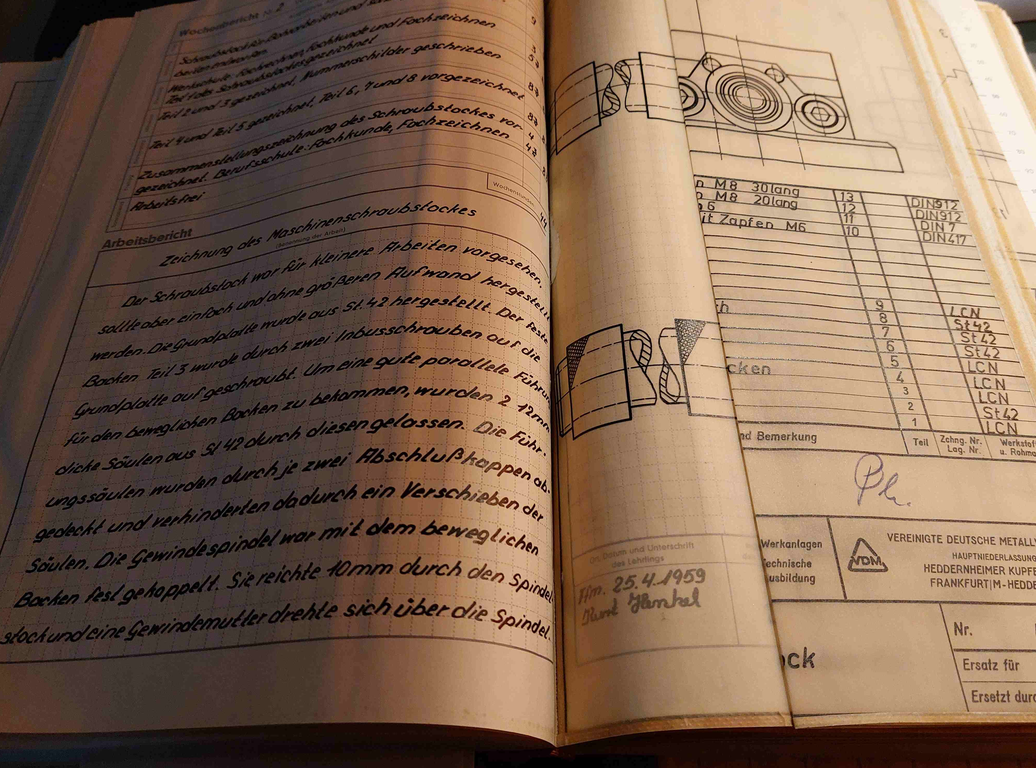 Wochenbericht Nr. 2
Schraubstock für Bohrarbeiten und
beiten entworfen.
Werkschule: Fachrechnen, Fachkunde und Fachzeichnen
Teil 1 des Schraubstockes gezeichnet
Teil 2 und 3 gezeichnet, Nummerschilder geschrieben
Teil 4 und Teil 5 gezeichnet, Teil 6, 7 und 8 vorgezeichnet
Zusammenstellungszeichnung des Schraubstockes vor-
gezeichnet. Berufsschule: Fachkunde, Fachzeichnen.
Arbeitsfrei
Wochenstunden 44
Arbeitsbericht
Zeichnung des Maschinenschraubstockes
(Benennung der Arbeit)
Der Schraubstock war für kleinere Arbeiten vorgesehen,
sollte aber einfach und ohne größeren Aufwand hergestellt
werden. Die Grundplatte wurde aus St. 42 hergestellt. Der feste
Backen Teil 3 wurde durch zwei Inbusschrauben auf die
Grundplatte auf geschraubt. Um eine gute parallele Führung
für den beweglichen Backen zu bekommen, wurden 2 12mm
dicke Säulen aus St 42 durch diesen gelassen. Die Führ-
ungssäulen wurden durch je zwei Abschlußkappen ab-
gedeckt und verhinderten dadurch ein Verschieben der
Säulen. Die Gewindespindel war mit dem beweglichen
Backen fest gekoppelt. Sie reichte 10mm durch den Spindel
stock und eine Gewindemutter drehte sich über die Spindel.
Ort, Datum und Unterschrift
des Lehrlings
Ffm. 25.4.1959
Kurt Henkel
M8 30lang 13 DIN912
M8 20lang 12 DIN912
6 11 DIN 7
it Zapfen M6 10 DIN417
h 9 LCN
8 St42
7 St42
6 St42
cken 5 LCN
4 LCN
3 LCN
2 St42
1 LCN
nd Bemerkung Teil Zchng. Nr. Lag. Nr. Werkstoff u. Rohma
Werkanlagen
Technische
Ausbildung
VDM
VEREINIGTE DEUTSCHE METALLW
HAUPTNIEDERLASSUNG
HEDDERNHEIMER KUPFE
FRANKFURT/M-HEDDE
ock
Nr.
Ersatz für
Ersetzt durc